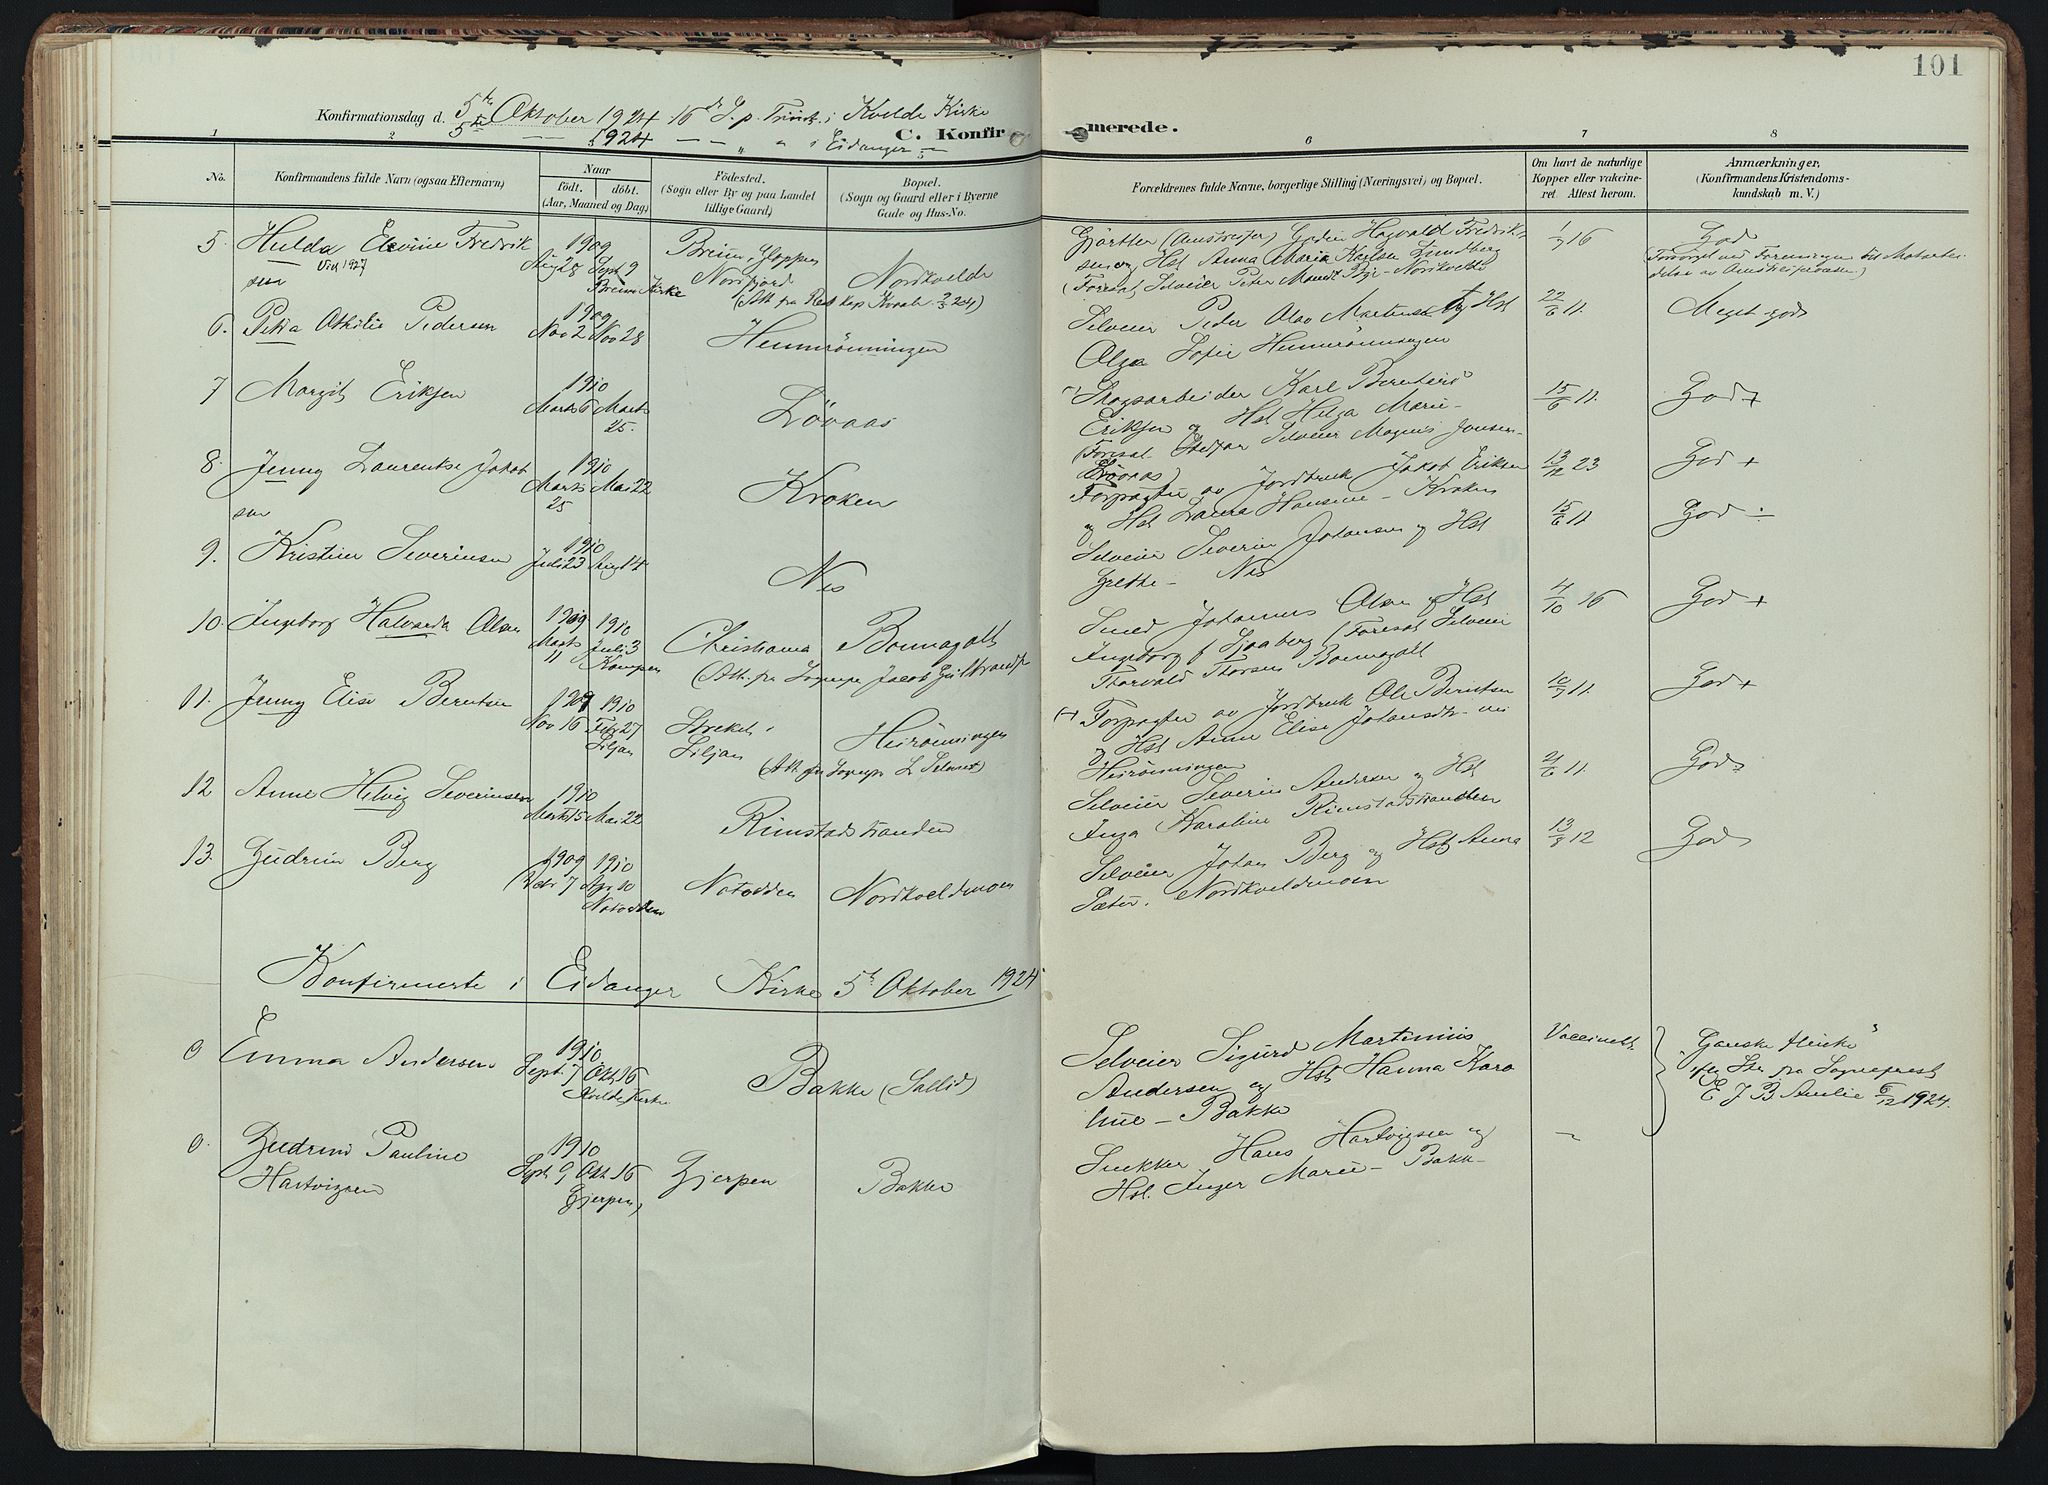 101
Konfirmationsdag d. 5te Oktober 1924 16de S. p. Trinit. i Kvelde Kirke
5te — — 1924 — — " " i Eidanger —
C. Konfirmerede.
1 2 3 4 5 6 7 8
No.
Konfirmandens fulde Navn (ogsaa Efternavn)
Naar
födt. döbt.
(Aar, Maaned og Dag)
Födested.
(Sogn eller By og paa Landet
tillige Gaard)
Bopæl.
(Sogn og Gaard eller i Byerne
Gade og Hus-No.
Forældrenes fulde Navne, borgerlige Stilling (Næringsvei) og Bopæl.
Om havt de naturlige
Kopper eller vakcine-
ret Attest herom.
Anmærkninger,
(Konfirmandens Kristendoms-
kundskab m. V.)
5. Hulda Elvine Fredrik
sen
Vid 1927
1909
Aug 28 Sept 9
Breim Kirke
Breim,
Nordfjord
Nordkvelde
(Att. fra Res. Kap. Kvaale 2/3 24)
Gjörtler (Omstreifer) Godin Hagvald Fredrik-
sen og Hst Anna Maria Karlsen Lundberg
(Foresat Selveier Peter Nordkvelde)
1/7 16
God
(Forsorget ved Foreningen til Motarbei
delse av Omstreiferv.)
6. Petra Othilie Pedersen
1909
Nov 2 Nov 28
Hemmrönningen
Selveier Peder Olav Martinsen og Hst
Olga Sofie Hemmrönningen
22/6 11.
Meget god
7 Margit Eriksen
1910
Marts 6 Marts
25.
Lövaas
Skogsarbeider Karl Berntinus
Eriksen og Hst Helga Marie —
(Foresat Stedfar Selveier Magnus Jonsen —
Lövaas)
15/6 11.
God +
8. Jenny Laurentse Jakob
sen
1910
Marts Mai 22
25
Kroken
Forpagter av Jordbruk Jakob Eriksen
og Hst Laura Hansine — Kroken
13/12 23
God +
9. Kristine Severinsen
1910
Juli 23 Aug 14
Nes
Selveier Severin Johansen og Hst
Grethe — Nes
15/6 11
God ÷
10. Ingeborg Halvarda Olsen
1909 1910
Marts Juli 3
11 Kampen
Christiania Bommagalt
(Att. fra Sognepr. Jacob Gulbrands
Smed Johannes Olsen og Hst
Ingeborg f Sjaaberg (Foresat Selveier
Thorvald Thorsen Bommagalt
4/10 16
God +
11. Jenny Elise Berntsen
1909 1910
Nov 16 Febr 27
Siljan
Siljan
Heirönningen
(Att. fra Sognepr.
Forpagter av Jordbruk Ole Berntsen
og Hst Anne Elise Johansdtr
Heirönningen
10/7 11.
God +
12 Anne Helvig Severinsen
1910
Marts 15 Mai 22
Rimstadstranden
Selveier Severin Andersen og Hst
Inga Karoline Rimstadstranden
21/6 11.
God
13. Gudrun Berg
1909 1910
Febr 7 Apr 10
Notodden
Notodden Nordkveldmoen
Selveier Johan Berg og Hst Anna
Sæter. Nordkveldmoen
13/9 12
God
Konfirmerte i Eidanger Kirke 5te Oktober 1924
0 Emma Andersen
1910
Sept. 7 Okt 16
Kvelde Kirke
Bakke
Selveier Sigurd Martinius
Andersen og Hst Hanna Karo
line — Bakke
Vaccinert
"Ganske flinke"
efter Skr. fra Sogneprest
E J B Aulie 6/12 1924.
0. Gudrun Pauline
Hartvigsen
1910
Sept 9 Okt 16
Gjerpen
Gjerpen Bakke
Snekker Hans Hartvigsen og
Hst. Inger Marie — Bakke
—